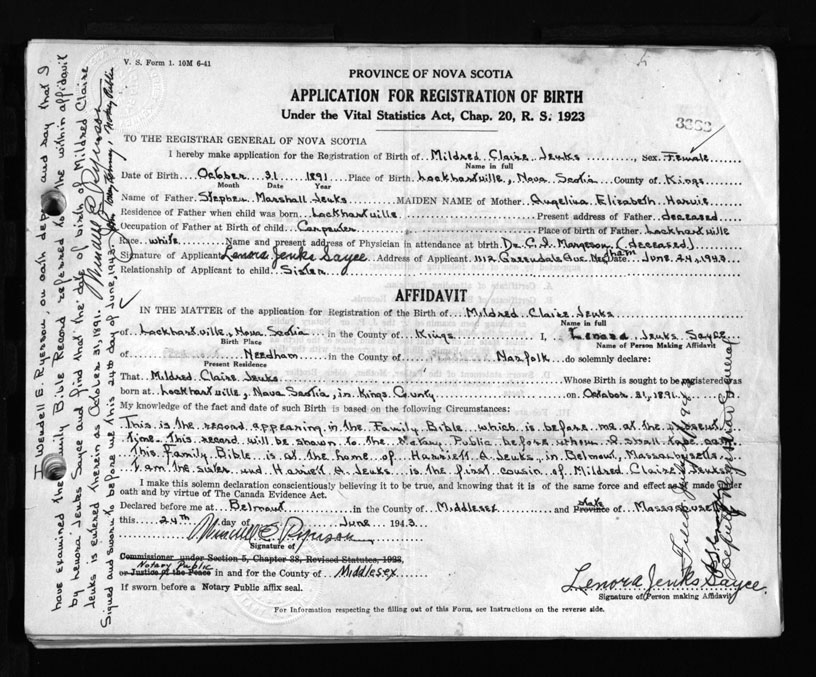 V. S. Form 1. 10M 6-41
PROVINCE OF NOVA SCOTIA
APPLICATION FOR REGISTRATION OF BIRTH
Under the Vital Statistics Act, Chap. 20, R. S. 1923
3383
TO THE REGISTRAR GENERAL OF NOVA SCOTIA
I hereby make application for the Registration of Birth of Mildred Claire Jenks, Sex Female
Name in full
Date of Birth October 31 1891 Place of Birth Lockhartville, Nova Scotia County of Kings
Month Date Year
Name of Father Stephen Marshall Jenks MAIDEN NAME of Mother Angelina Elizabeth Harvie
Residence of Father when child was born Lockhartville Present address of Father deceased
Occupation of Father at Birth of child Carpenter Place of birth of Father Lockhartville
Race white Name and present address of Physician in attendance at birth Dr. C. I. Margeson (deceased)
Signature of Applicant Lenora Jenks Sayce Address of Applicant 1112 Greendale Ave. Needham Date June 24, 1943
Relationship of Applicant to child Sister
AFFIDAVIT
IN THE MATTER of the application for Registration of the Birth of Mildred Claire Jenks
Name in full
of Lockhartville, Nova Scotia in the County of Kings I, Lenora Jenks Sayce
Birth Place Name of Person Making Affidavit
of Needham in the County of Norfolk do solemnly declare:
Present Residence
That Mildred Claire Jenks Whose Birth is sought to be registered
born at Lockhartville, Nova Scotia, in Kings County on October 31, 1891
My knowledge of the fact and date of such Birth is based on the following Circumstances:
This is the record appearing in the Family Bible which is before me at the present
time. This record will be shown to the Notary Public before whom I shall take oath.
This Family Bible is at the home of Harriett A. Jenks, in Belmont, Massachusetts.
I am the sister and Harriett A. Jenks is the first cousin of Mildred Claire Jenks
I make this solemn declaration conscientiously believing it to be true, and knowing that it is of the same force and effect as if made under
oath and by virtue of The Canada Evidence Act.
Declared before me at Belmont in the County of Middlesex and State Province of Massachusetts
this 24th day of June 1943
Wendell E. Ryerson
Signature of
Commissioner under Section 5, Chapter 38, Revised Statutes, 1923
Notary Public
or Justice of the Peace in and for the County of Middlesex
If sworn before a Notary Public affix seal.
Lenora Jenks Sayce
Signature of Person making Affidavit
For Information respecting the filling out of this Form, see Instructions on the reverse side.
I Wendell E. Ryerson, on oath depose and say that I
have examined the Family Bible Record referred to in the within affidavit
by Lenora Jenks Sayce and find that the date of birth of Mildred Claire
Jenks is entered therein as October 31, 1891. Wendell E. Ryerson
Signed and sworn to before me this 24th day of June, 1943. Notary Public
Deputy Registrar General